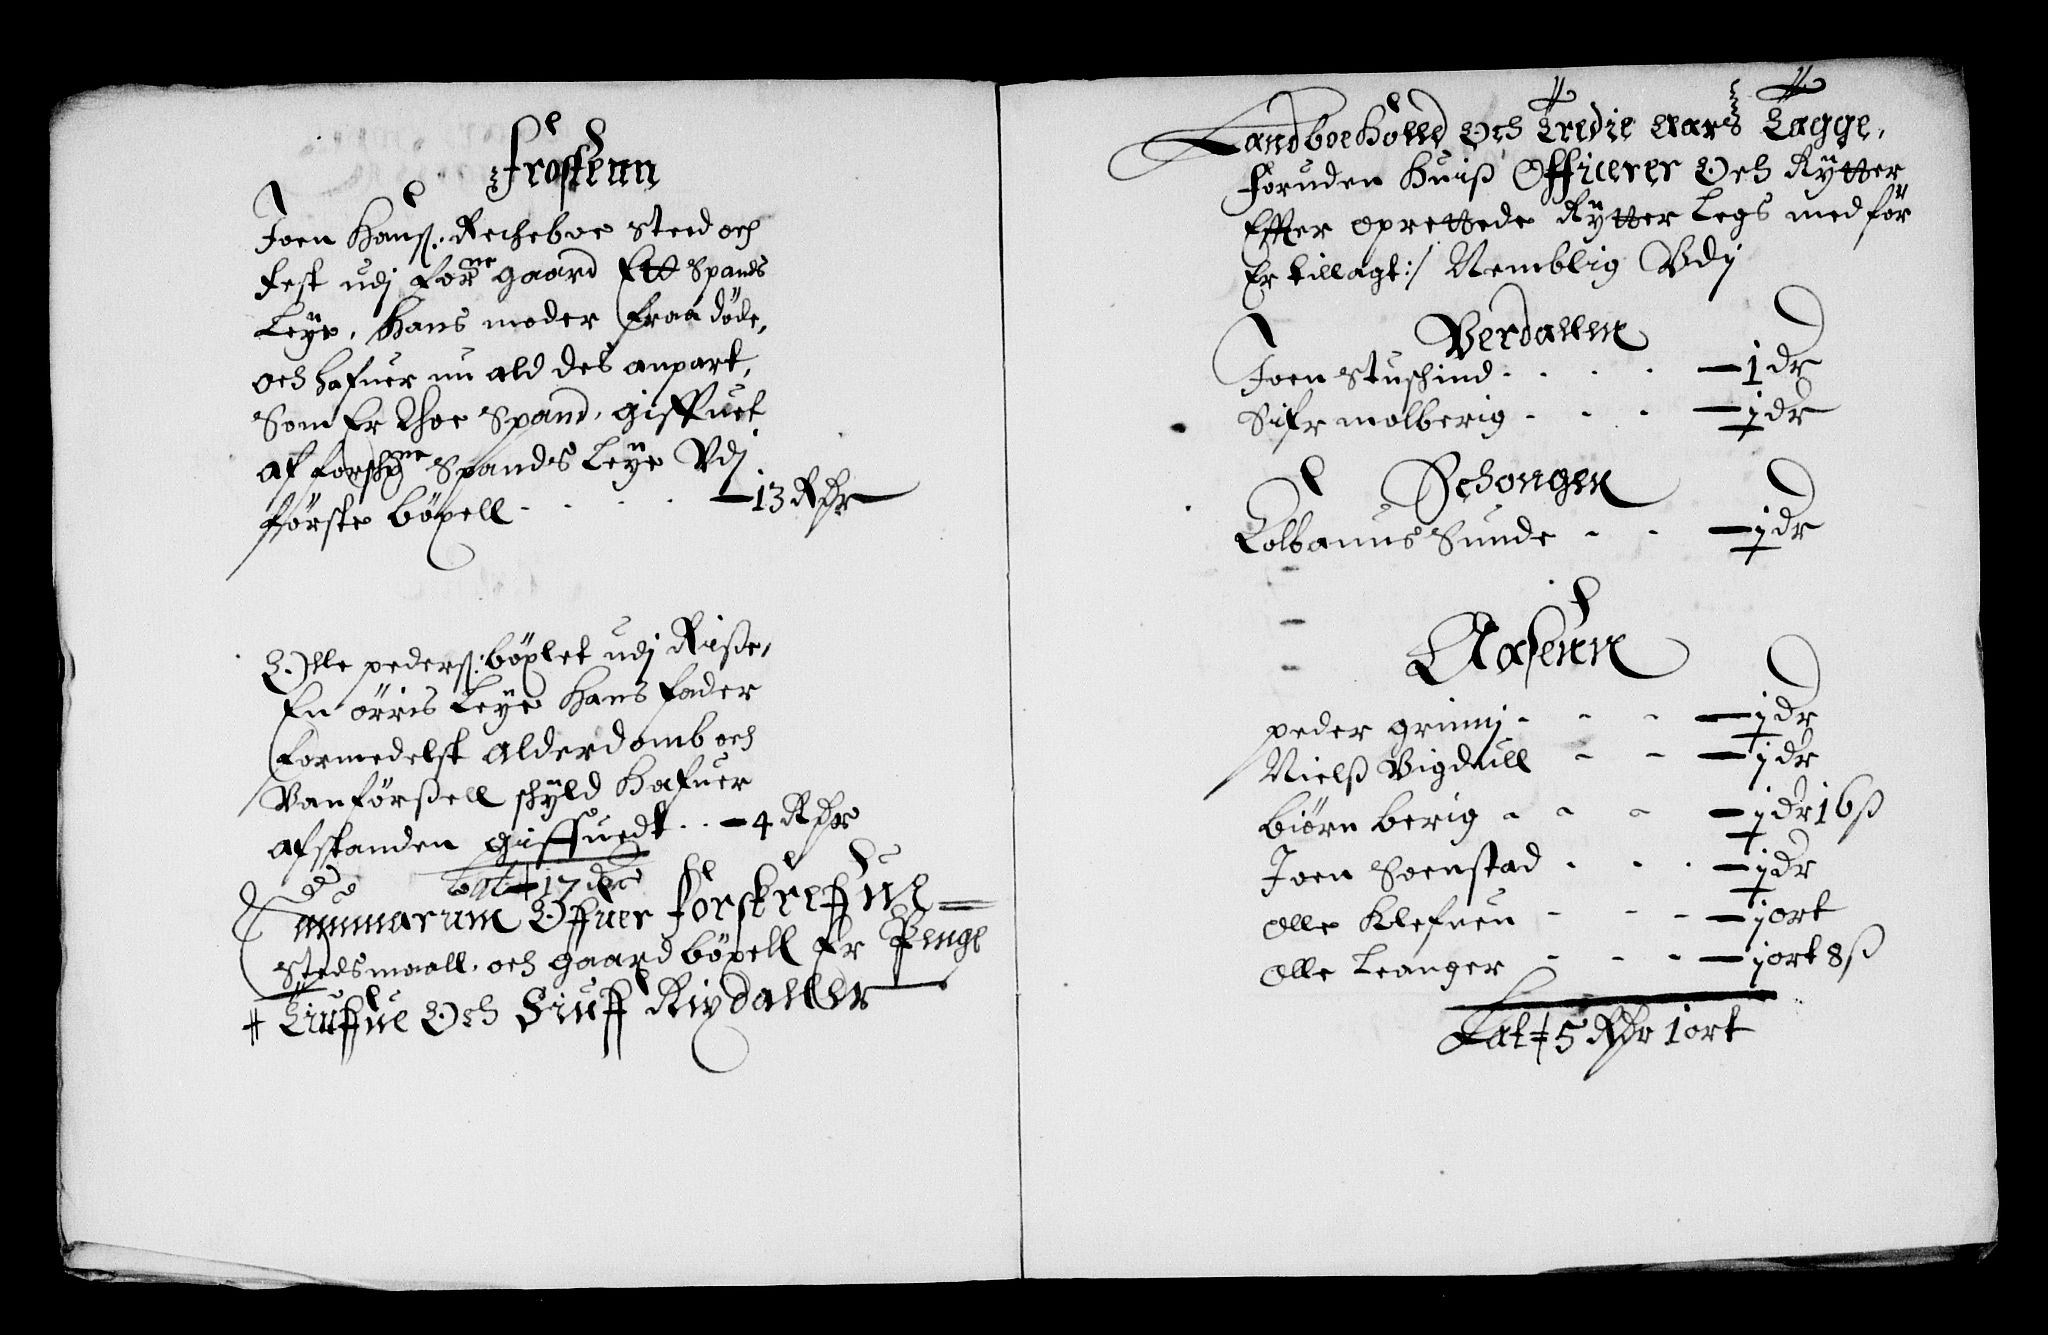 Frostenn
Joen Hanß. Recheboe sted och
fest udj forne gaard Ett Spands
Leye, Hans moder fraa døde,
och hafuer nu ald des anpart,
Som Er thoe Spand, giffuet
af forschne Spands Leye Vdj
første böxell - 13 Rdr
Olle pederß: böxlet udj Riße,
En örris Leye Hans fader
formedelst alderdomb och
Vanförßell schÿld Hafuer
afstanden giffuedt - 4 Rdr
Lat 17 dr
Summarum Offuer forskreffne
Stedsmaall, och gaard böxell Er Penge
Tiuffue Och Siuff Rixdaller
Landboe Holld Och Tredie Aars Tagge,
foruden Huiß Officerer Och Rÿtter
Effter oprettede Rÿtter Legs medför
Er tillagt:/ Nemblig Vdj
Verdallen
Joen Stuschind - 1 dr
Sifr molberig - 1 dr
Schongen
Colbanus Sunde - 1 dr
Aasenn
peder grimj - 1 dr
Nielß Vigdaill - 1 dr
biörn berig - 1 dr 16 ß
Joen Soenstad - 1 dr
olle Klefuen - 1 ort
olle Leanger - 1 ort 8 ß
Lat 5 Rdr 1 ort